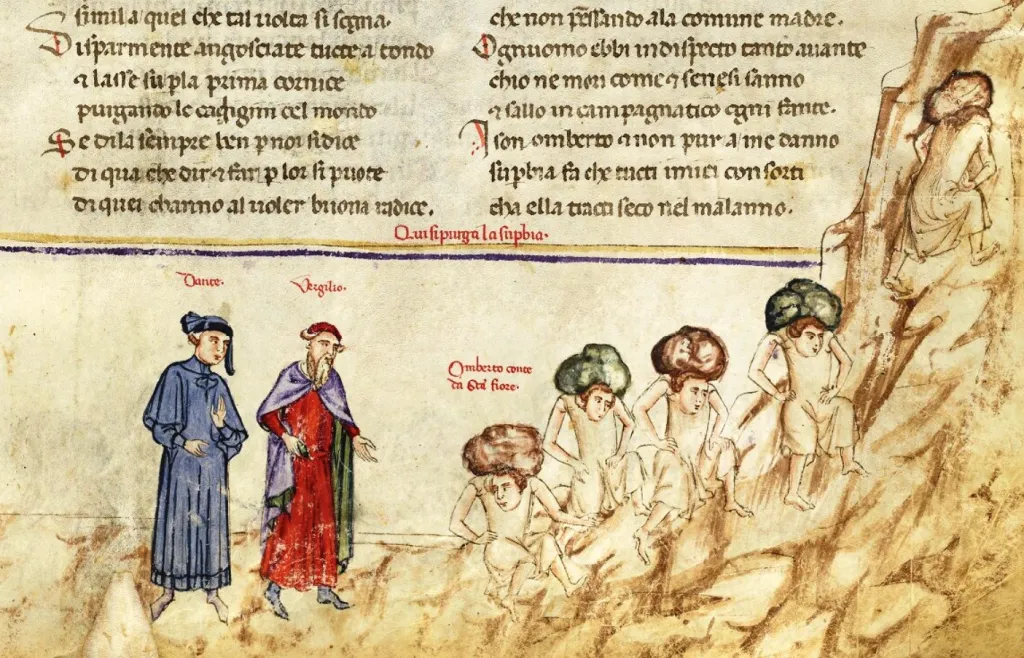 simil a quel che tal uolta si sogna.
Disparmente angosciate tucte a tondo
⁊ lasse su pla prima cornice
purgando le caligini del mondo
Se dila sempre ben p noi si dice
di qua che dir ⁊ far p lor si puote
da quei channo al uoler buona radice.
che non pensando ala comune madre.
Ogn uomo ebbi in dispecto tanto auante
chio ne mori come ⁊ senesi sanno
⁊ sallo in campagnatico ogni fante.
I son omberto ⁊ non pur a me danno
supbia fa che tucti miei consorti
cha ella tracti seco nel malanno.
Qui si purga la supbia.
Dante.
Vergilio.
Omberto conte
da Sta fiore.